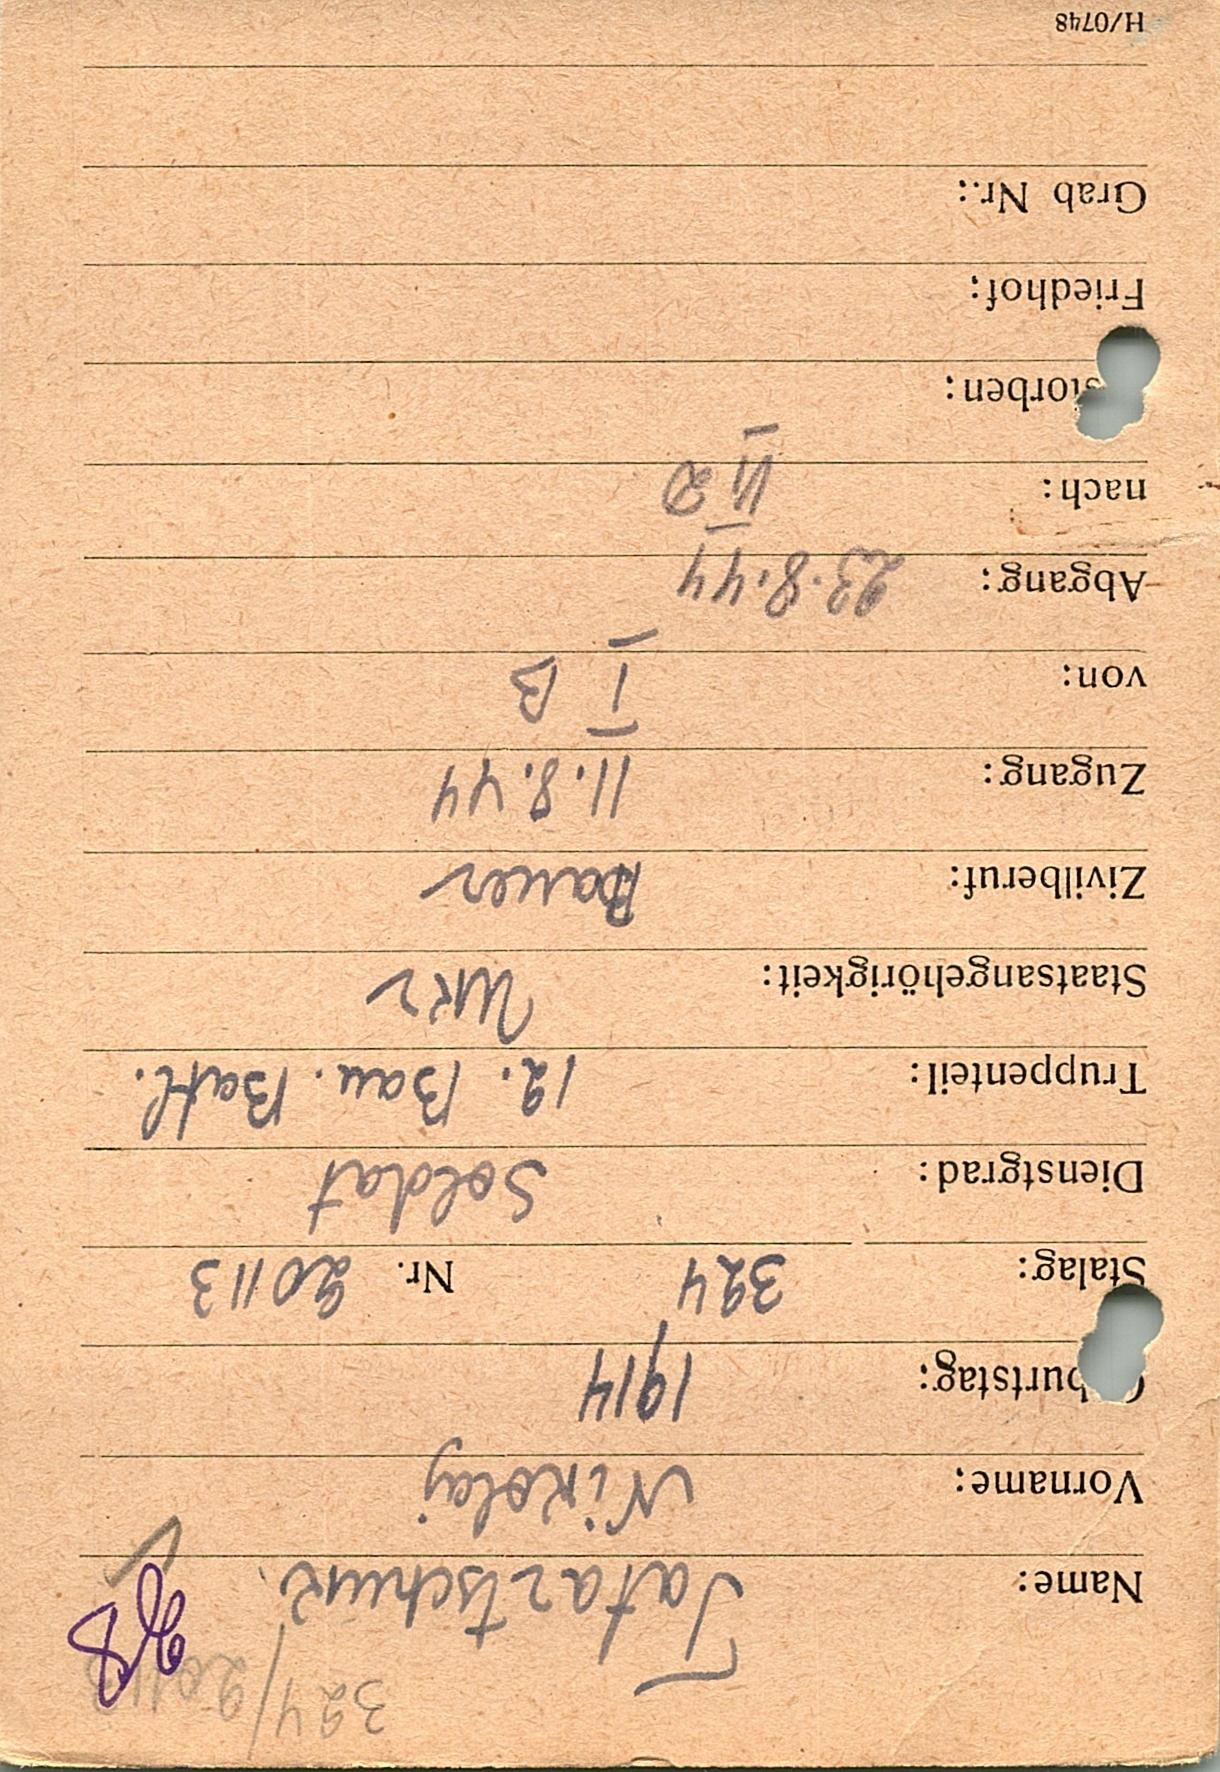 324/20113
98
Name: Tatartschuk.
Vorname: Nikolaj
burtstag: 1914
Stalag: 324 Nr. 20113
Dienstgrad: Soldat
Truppenteil: 12. Bau. Batl.
Staatsangehörigkeit: Ukr
Zivilberuf: Bauer
Zugang: 11.8.44
von: I B
Abgang: 23.8.44
nach: II D
storben:
Friedhof:
Grab Nr.:
H/0748